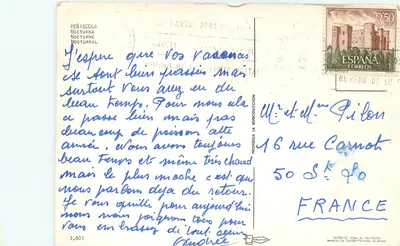 PEÑISCOLA
NOCTURNA
NOCTURNE
NOCTURNAL
J'espere que vos vacances
se sont bien passées mais
surtout vous avez eu du
beau temps. Pour nous cela
ce passe bien mais pas
beaucoup de poisson cette
année. Nous avons toujours
beau temps et même très chaud
mais le plus moche c'est que
nous parlons deja du retour.
Je vous quitte pour aujourd'hui
nous nous joignons tous pour
vous embrasser de tout coeur
3.601
PROHIBIDA LA REPRODUCCION
2,50
ESPAÑA
CORREOS
Mr et Mme Pilon
16 rue Carnot
50 St Lo
FRANCE